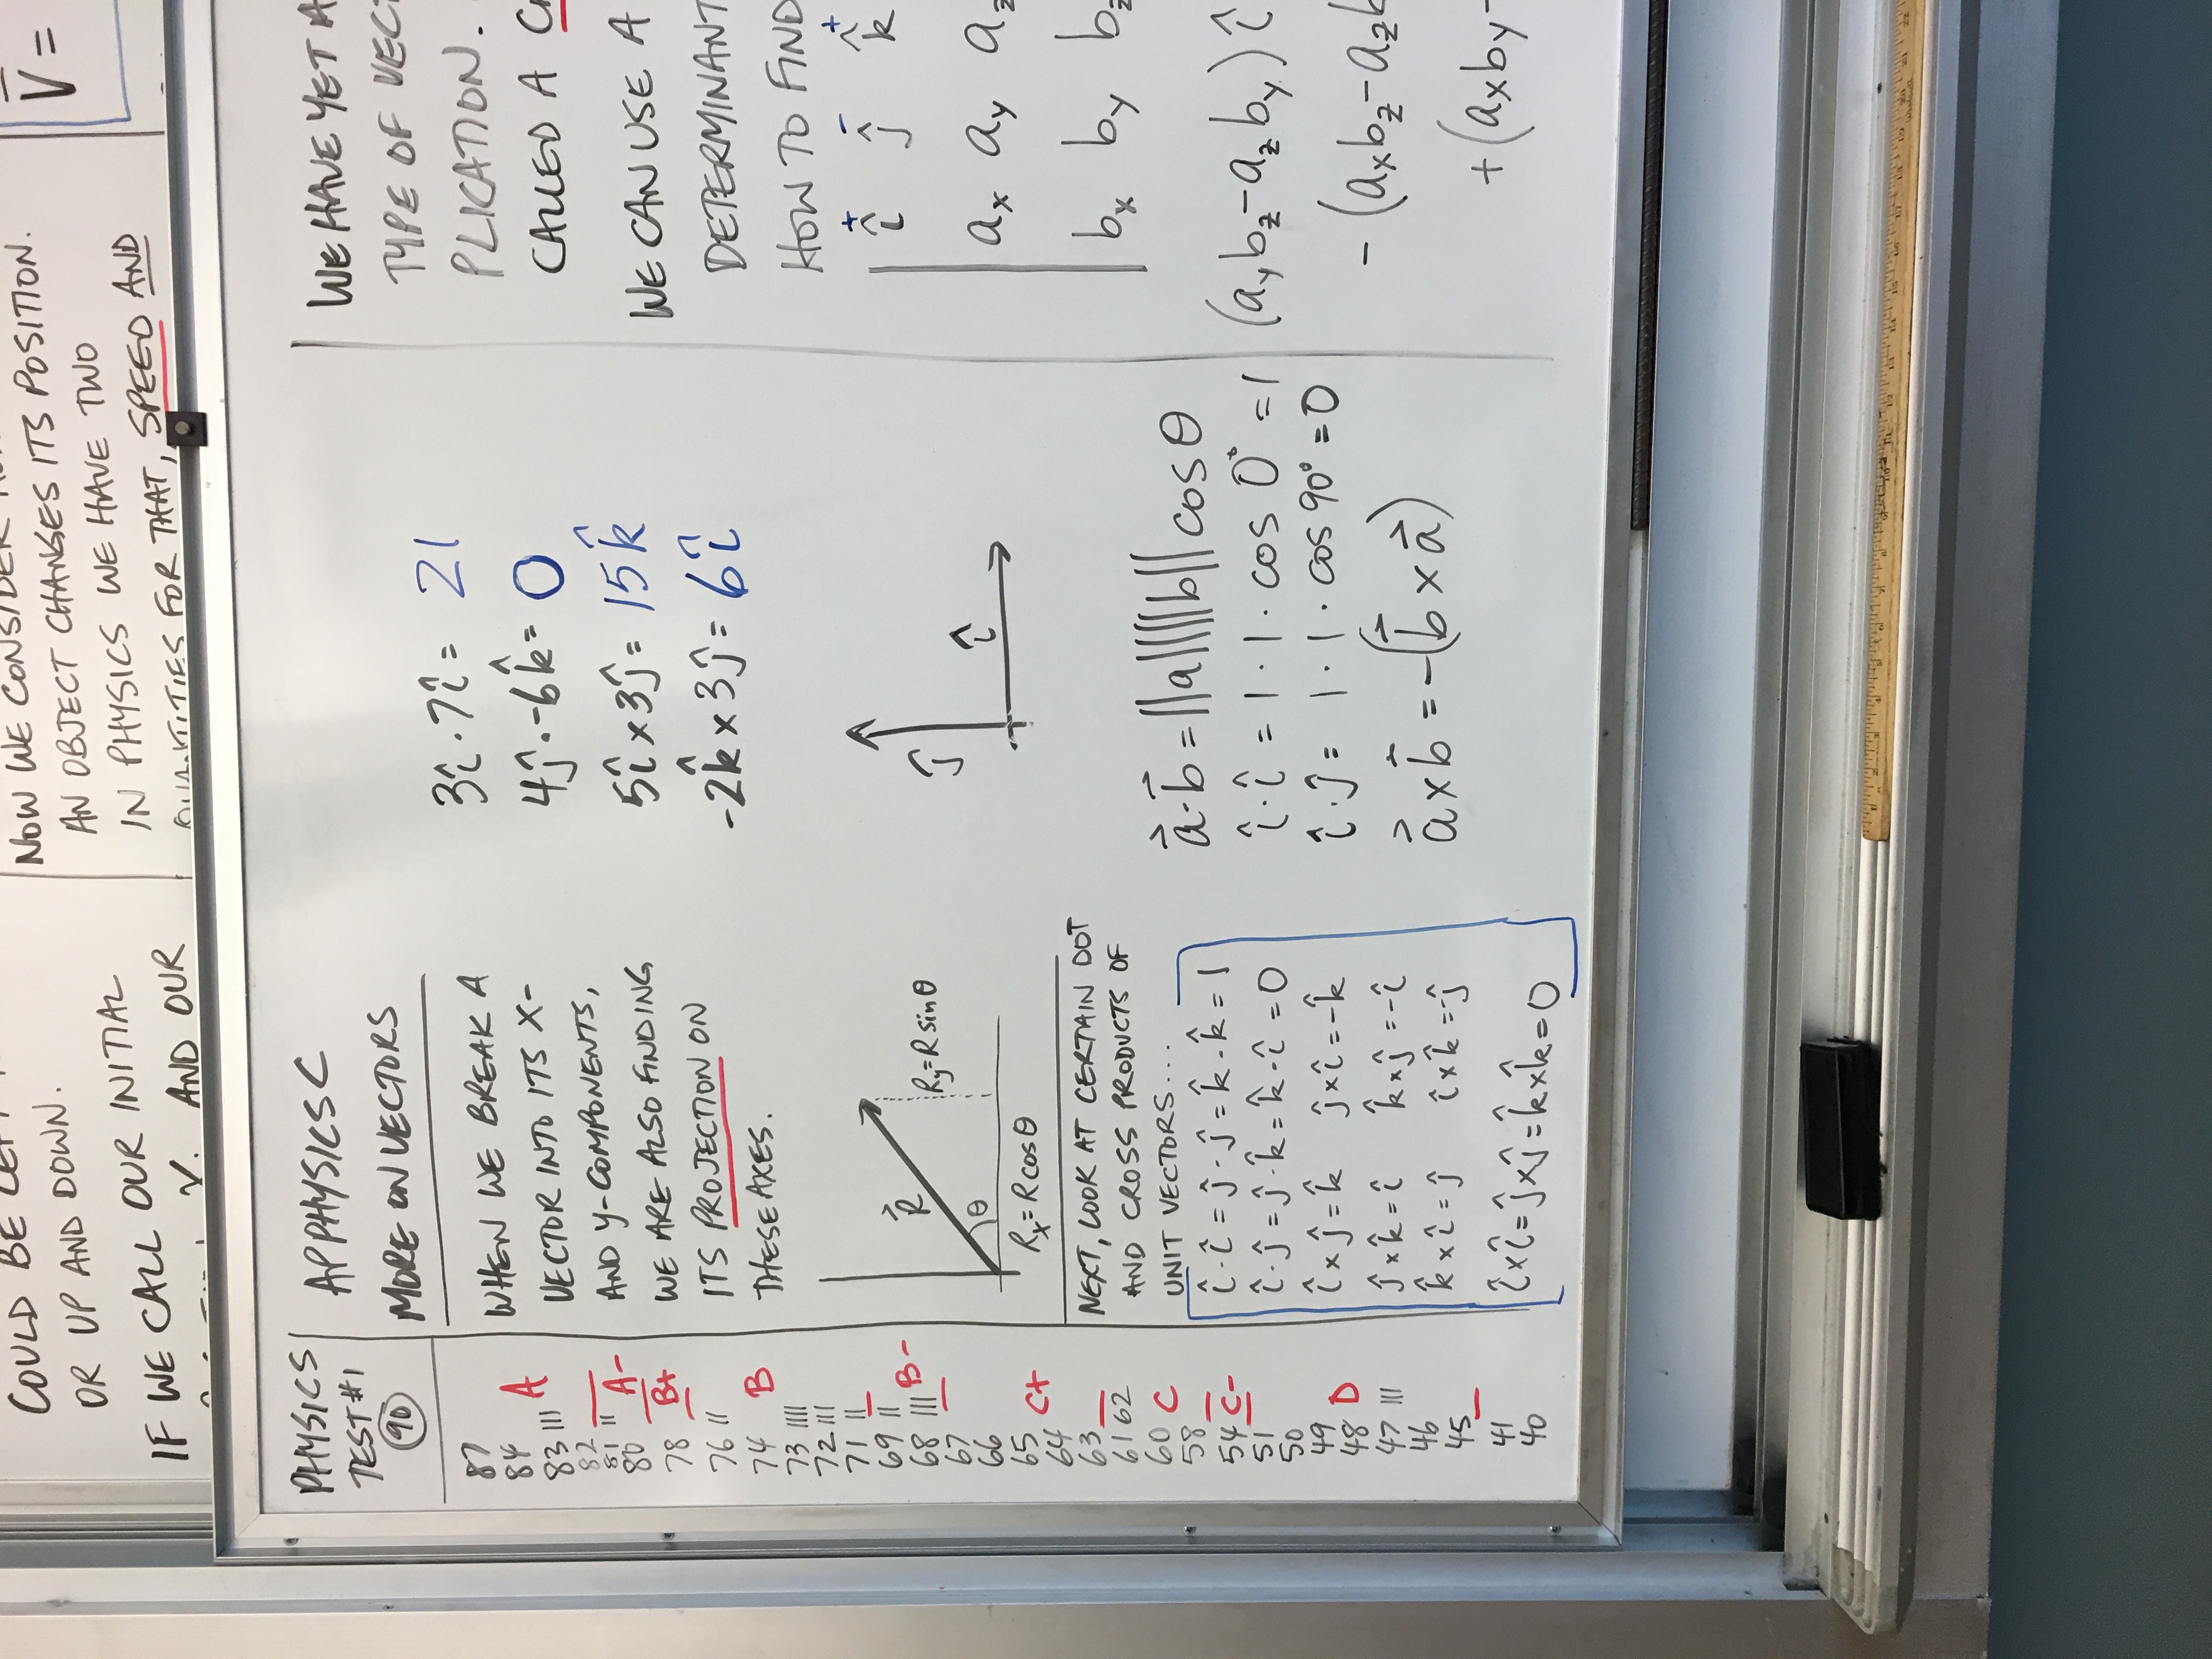 COULD BE
OR UP AND DOWN.
IF WE CALL OUR INITIAL
AND OUR
NOW WE CONSIDER
AN OBJECT CHANGES ITS POSITION.
IN PHYSICS WE HAVE TWO
QUANTITIES FOR THAT, SPEED AND
V⃗ =
PHYSICS
TEST #1
90
87
84
83 III A
82
81 II
80 A-
78 B+
76 II
74 B
73 IIII
72 III
71 II
69 II
68 IIII B-
67
66
65 C+
64
63
61 62
60 C
58
54 C-
51
50
49
48 D
47 III
46
45
41
40
AP PHYSICS C
MORE ON VECTORS
WHEN WE BREAK A
VECTOR INTO ITS X-
AND Y-COMPONENTS,
WE ARE ALSO FINDING
ITS PROJECTION ON
THESE AXES.
R⃗
θ
Ry=Rsinθ
Rx=Rcosθ
NEXT, LOOK AT CERTAIN DOT
AND CROSS PRODUCTS OF
UNIT VECTORS...
î·î=ĵ·ĵ=k̂·k̂=1
î·ĵ=ĵ·k̂=k̂·î=0
îxĵ=k̂ ĵxî=-k̂
ĵxk̂=î k̂xĵ=-î
k̂xî=ĵ îxk̂=-ĵ
îxî=ĵxĵ=k̂xk̂=0
3î·7î= 21
4ĵ·-6k̂= 0
5îx3ĵ= 15k̂
-2k̂x3ĵ= 6î
ĵ
î
a⃗·b⃗=||a||||b||cosθ
î·î=1·1·cos 0°=1
î·ĵ=1·1·cos90°=0
a⃗xb⃗=-(b⃗xa⃗)
WE HAVE YET A
TYPE OF VEC
PLICATION.
CALLED A
WE CAN USE A
DETERMINANT
HOW TO FIND
+ - +
î ĵ k̂
ax ay az
bx by bz
(aybz-azby)î
-(axbz-az
+(axby-